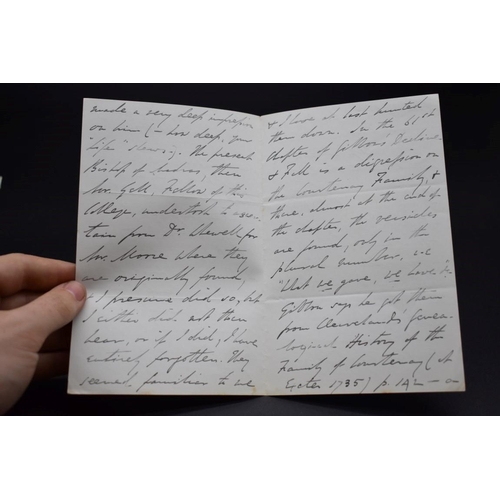 made a very deep impression
on him (– how deep, your
"Life" shews). The present
Bishop of Madras, then
Mr. Gell, Fellow of this
College, undertook to ascer-
tain from Dr. Whewell for
Mr. Moore where they
are originally found,
& I presume did so, but
I either did not then
hear, or if I did, I have
entirely forgotten. They
seemed familiar to me
& I have at last hunted
them down. In the 61st
Chapter of Gibbon's Decline
& Fall is a digression on
the Courtenay Family, &
there, almost at the end of
the chapter, the versicles
are found, only in the
plural number, i.e.
"What we gave, we have" &c
Gibbon says he got them
from Cleaveland's Genea-
logical History of the
Family of Courtenay (at
Exeter 1735) p. 142 – a